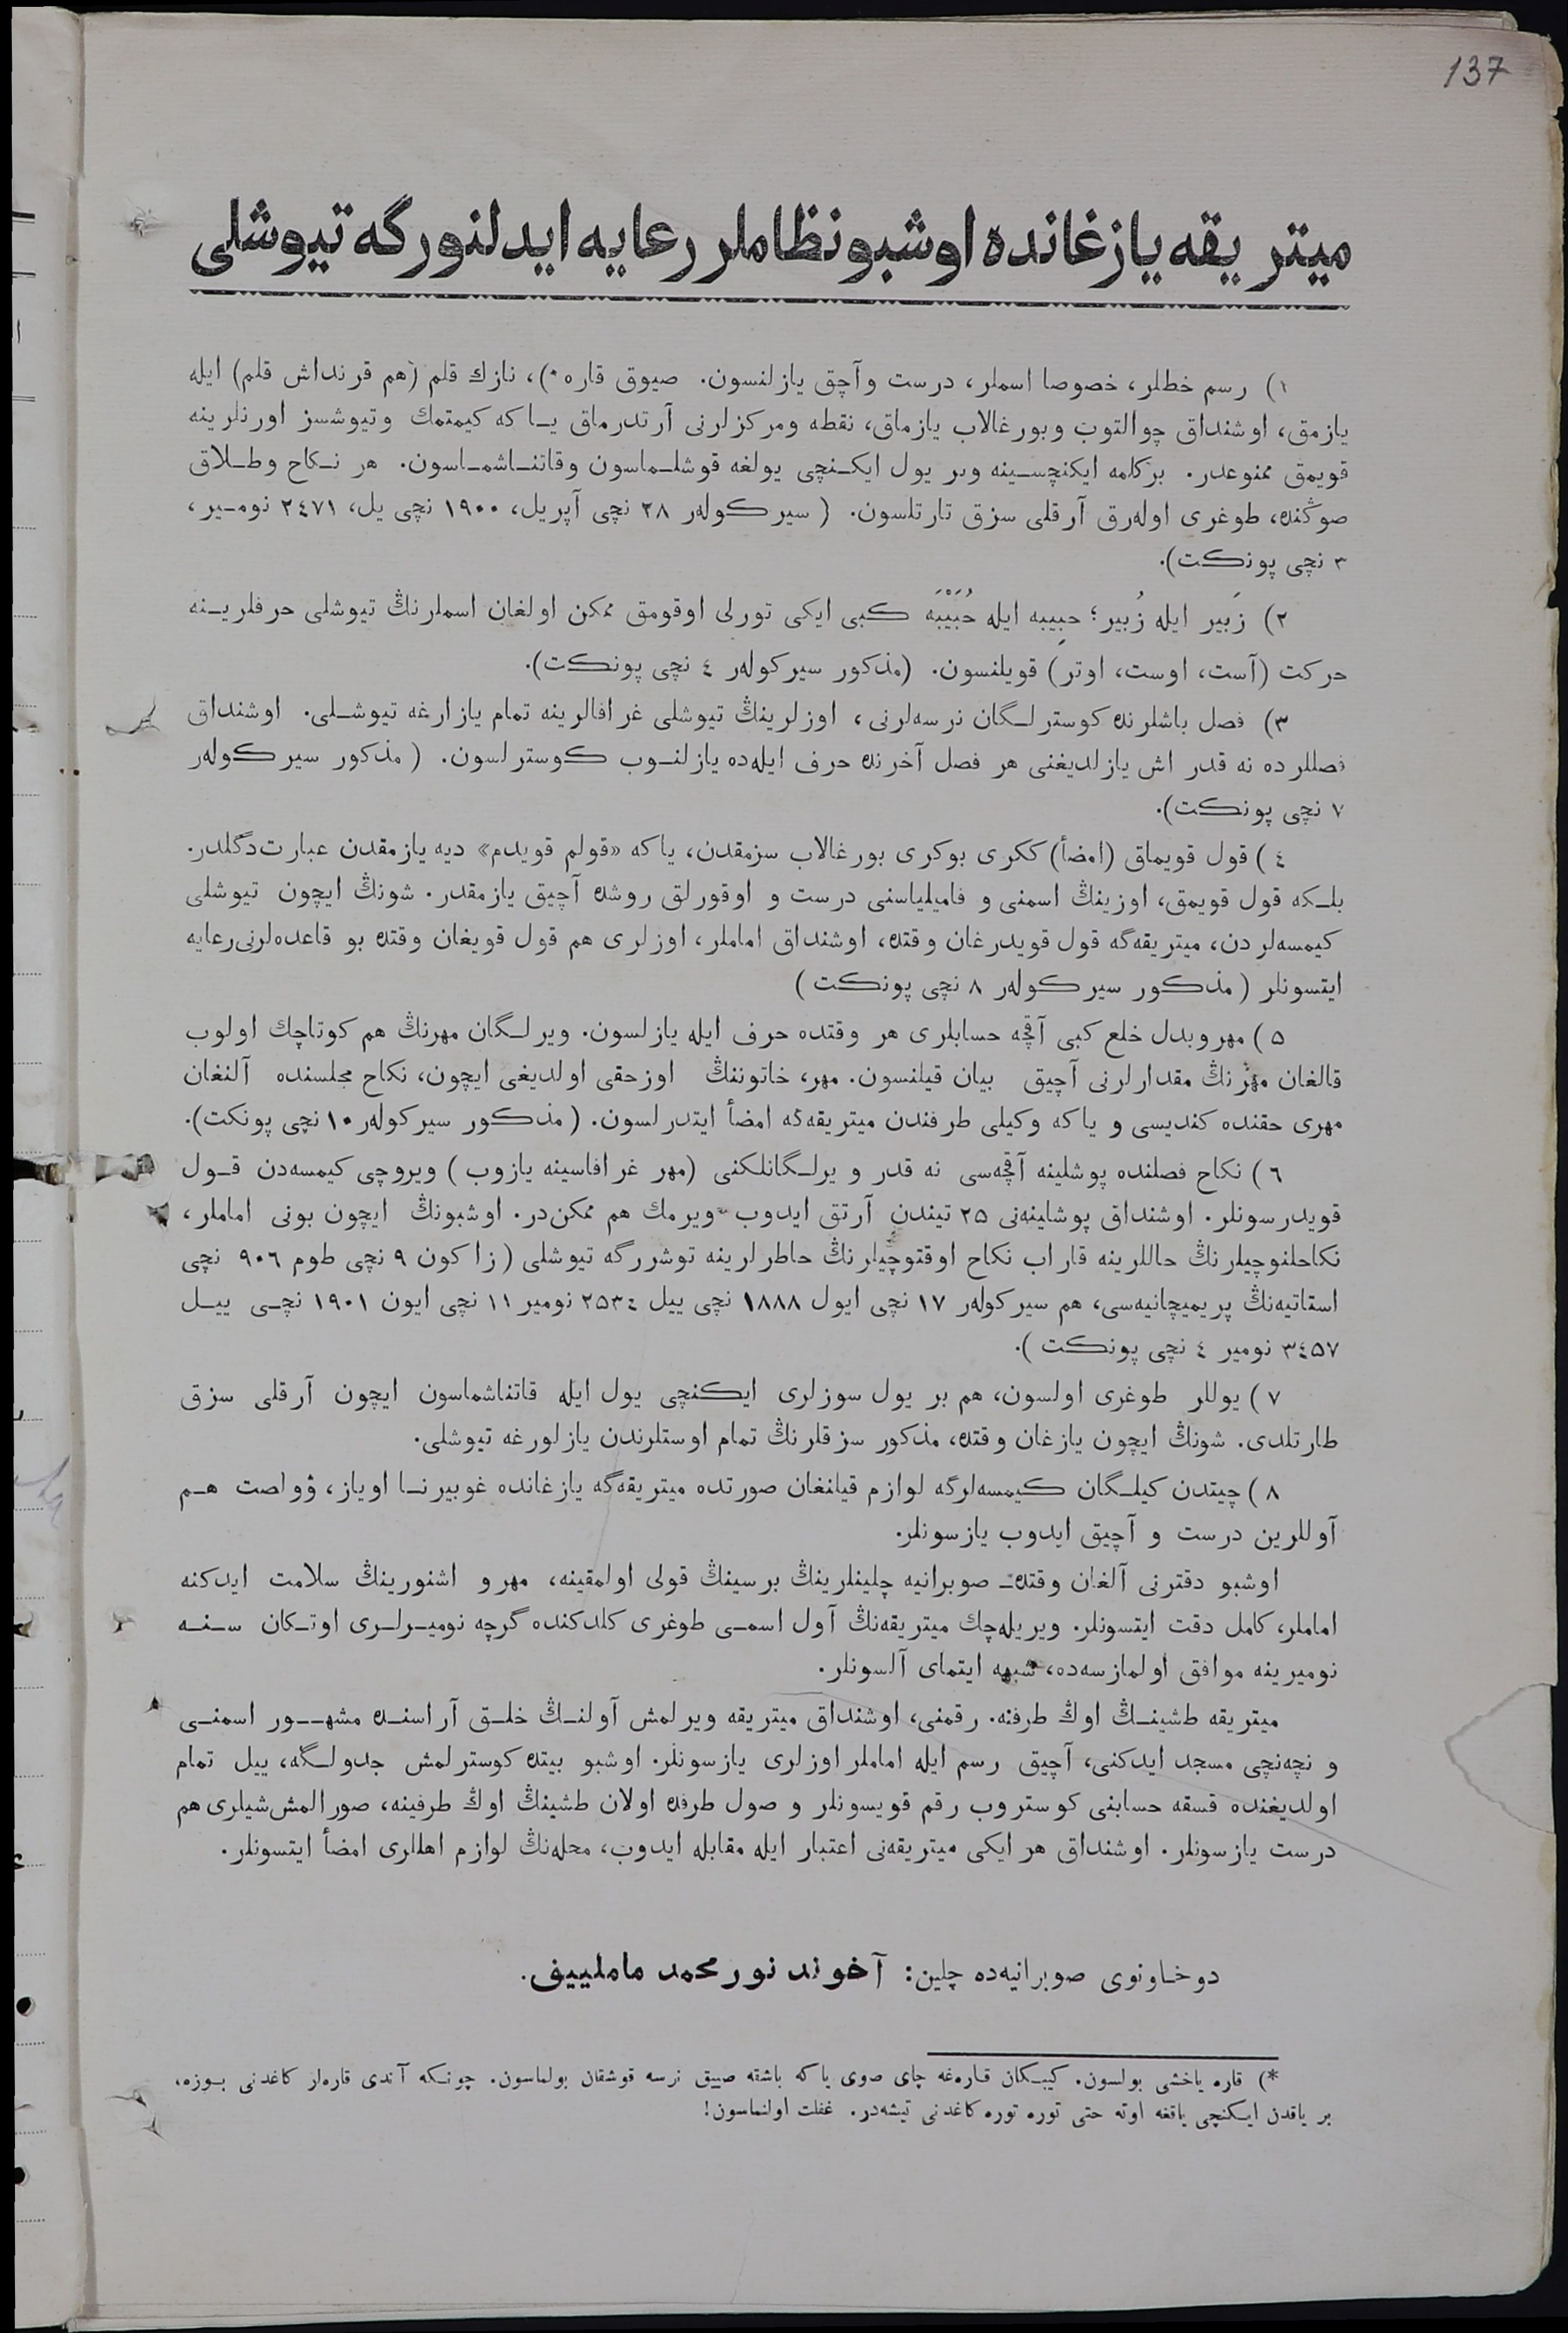 137
ميتريقه يازغانده اوشبو نظاملر رعايه ايدلنورگه تيوشلى
١) رسم خطلر، خصوصا اسملر، درست وآچق يازلنسون. صيوق قاره*)، نازك قلم (هم قرنداش قلم) ايله
يازمق، اوشنداق چوالتوب وبورغالاب يازماق، نقطه ومركزلرنى آرتدرماق ياكه كيمتمك وتيوشسز اورنلرينه
قويمق ممنوعدر. بركلمه ايكنچسينه وبر يول ايكنچى يولغه قوشلماسون وقاتناشماسون. هر نكاح وطلاق
صوڭنده، طوغرى اولهرق آرقلى سزق تارتلسون. (سيركولهر ٢٨ نچى آپريل، ١٩٠٠ نچى يل، ٢٤٧١ نومير،
٣ نچى پونكت).
٢) زَبير ايله زُبير؛ حبِيبه ايله حُبَيْبَه كبى ايكى تورلى اوقومق ممكن اولغان اسملرنڭ تيوشلى حرفلرينه
حركت (آست، اوست، اوتر) قويلنسون. (مذكور سيركولهر ٤ نچى پونكت).
٣) فصل باشلرنده كوسترلگان نرسهلرنى، اوزلرينڭ تيوشلى غرافالرينه تمام يازارغه تيوشلى. اوشنداق
فصللرده نه قدر اش يازلديغنى هر فصل آخرنده حرف ايلهده يازلنوب كوسترلسون. (مذكور سيركولهر
٧ نچى پونكت).
٤) قول قويماق (امضأ) ككرى بوكرى بورغالاب سزمقدن، ياكه «قولم قويدم» ديه يازمقدن عبارت دگلدر.
بلكه قول قويمق، اوزينڭ اسمنى و فاميلياسنى درست و اوقورلق روشده آچيق يازمقدر. شونڭ ايچون تيوشلى
كيمسهلردن، ميتريقهگه قول قويدرغان وقتده، اوشنداق اماملر، اوزلرى هم قول قويغان وقتده بو قاعدهلرنى رعايه
ايتسونلر (مذكور سيركولهر ٨ نچى پونكت)
٥) مهر وبدل خلع كبى آقچه حسابلرى هر وقتده حرف ايله يازلسون. ويرلگان مهرنڭ هم كوتاچك اولوب
قالغان مهرنڭ مقدارلرنى آچيق بيان قيلنسون. مهر، خاتوننڭ اوزحقى اولديغى ايچون، نكاح مجلسنده آلنغان
مهرى حقنده كنديسى و ياكه وكيلى طرفندن ميتريقهگه امضأ ايتدرلسون. (مذكور سيركولهر ١٠ نچى پونكت).
٦) نكاح فصلنده پوشلينه آقچهسى نه قدر ويرلگانلكنى (مهر غرافاسينه يازوب) ويروچى كيمسهدن قول
قويدرسونلر. اوشنداق پوشلينهنى ٢٥ تيندن آرتق ايدوب ويرمك هم ممكندر. اوشبونڭ ايچون بونى اماملر،
نكاحلنوچيلرنڭ حاللرينه قاراب نكاح اوقتوچيلرنڭ خاطرلرينه توشررگه تيوشلى (زاكون ٩ نچى طوم ٩٠٦ نچى
استاتيهنڭ پريميچانيهسى، هم سيركولهر ١٧ نچى ايول ١٨٨٨ نچى ييل ٢٥٣٤ نومير ١١ نچى ايون ١٩٠١ نچى ييل
٣٤٥٧ نومير ٤ نچى پونكت).
٧) يوللر طوغرى اولسون، هم بر يول سوزلرى ايكنچى يول ايله قاتناشماسون ايچون آرقلى سزق
طارتلدى. شونڭ ايچون يازغان وقتده، مذكور سزقلرنڭ تمام اوستلرندن يازلورغه تيوشلى.
٨) چيتدن كيلگان كيمسهلرگه لوازم قيلنغان صورتده ميتريقهگه يازغانده غوبيرنا اوياز، ۋولصت هم
آوللرين درست و آچيق ايدوب يازسونلر.
اوشبو دفترنى آلغان وقتده صوبرانيه چلينلرينڭ برسينڭ قولى اولمقينه، مهر و اشنورينڭ سلامت ايدكنه
اماملر، كامل دقت ايتسونلر. ويريلهچك ميتريقهنڭ آول اسمى طوغرى كلدكنده گرچه نوميرلرى اوتكان سنه
نوميرينه موافق اولمازسهده، شبهه ايتماى آلسونلر.
ميتريقه طشينڭ اوڭ طرفنه. رقمنى، اوشنداق ميتريقه ويرلمش آولنڭ خلق آراسنده مشهور اسمنى
و نچهنچى مسجد ايدكنى، آچيق رسم ايله اماملر اوزلرى يازسونلر. اوشبو بيتده كوسترلمش جدولگه، ييل تمام
اولديغنده قسقه حسابنى كوستروب رقم قويسونلر و صول طرفده اولان طشينڭ اوڭ طرفينه، صورالمش شيلرى هم
درست يازسونلر. اوشنداق هر ايكى ميتريقهنى اعتبار ايله مقابله ايدوب، محلهنڭ لوازم اهللرى امضأ ايتسونلر.
دوخاونوى صوبرانيهده چلين: آخوند نورمحمد ماملييف.
*) قاره ياخشى بولسون. كيبكان قارهغه چاى صوى ياكه باشقه صييق نرسه قوشقان بولماسون. چونكه آندى قارهلر كاغدنى بوزه،
بر ياقدن ايكنچى ياقغه اوته حتى توره توره كاغدنى تيشهدر. غفلت اولنماسون!